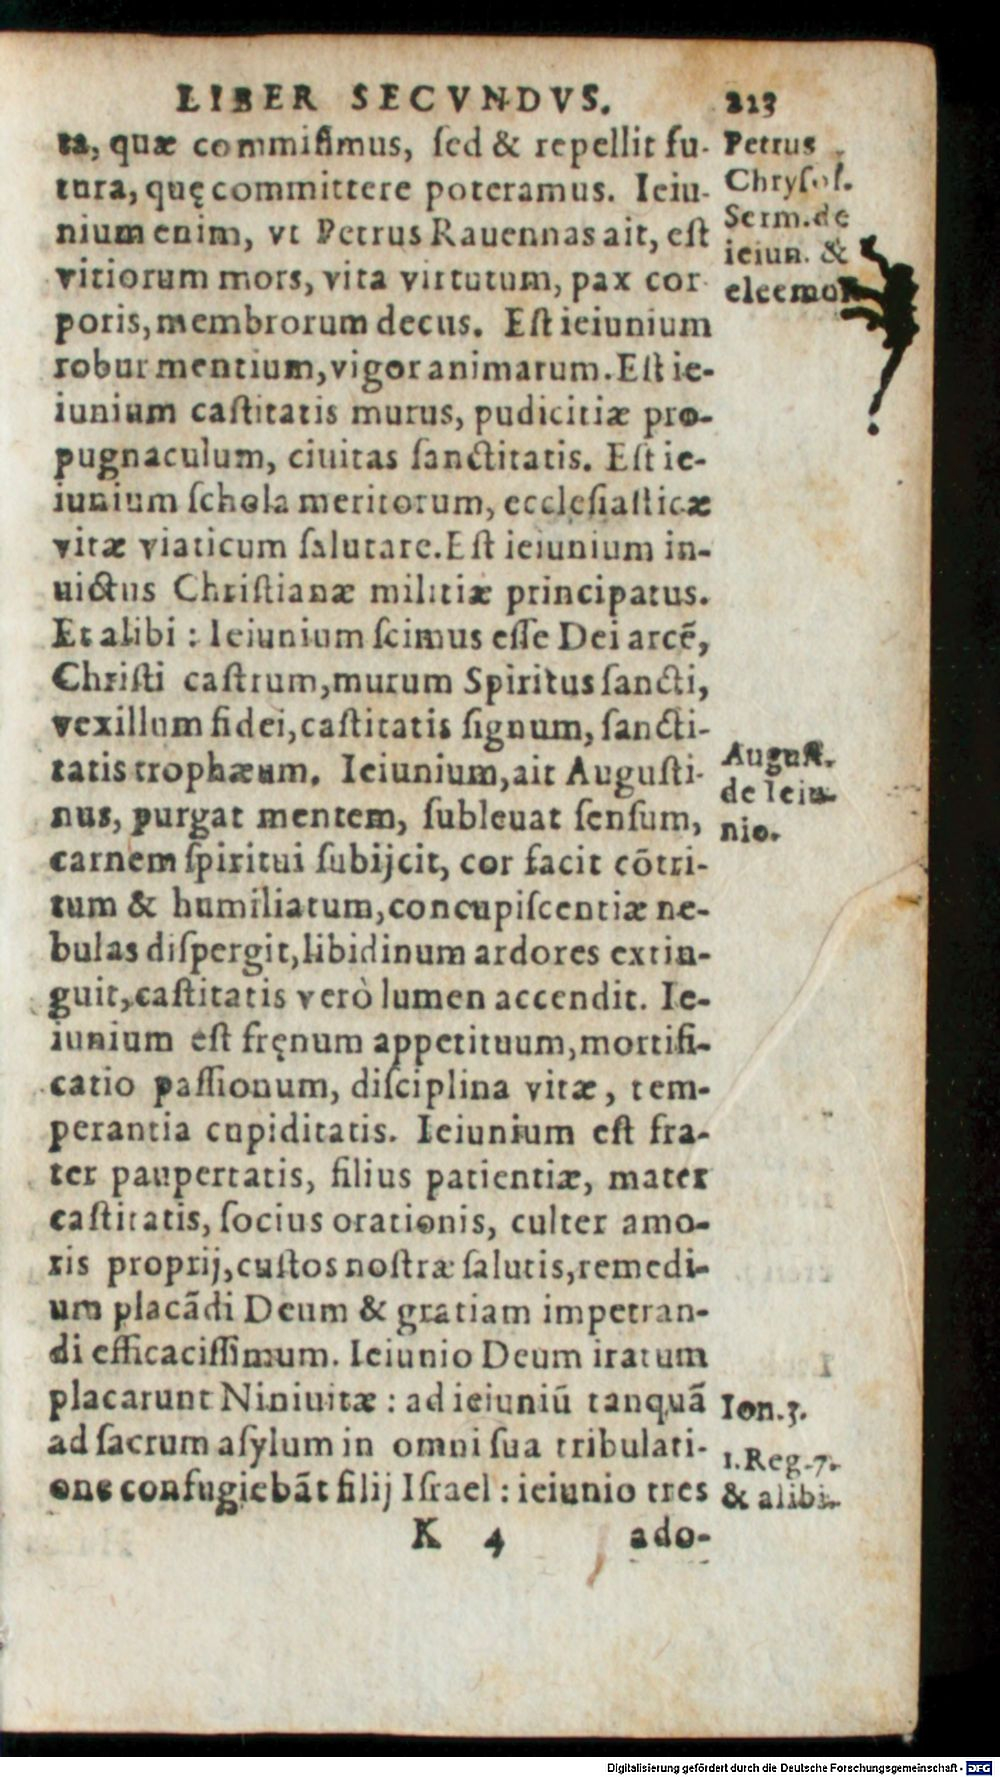 LIBER SECVNDVS. 213
ta, quæ commiſimus, ſed & repellit fu-
tura, quę committere poteramus. Ieiu-
nium enim, vt Petrus Rauennas ait, eſt
vitiorum mors, vita virtutum, pax cor
poris, membrorum decus. Eſt ieiunium
robur mentium, vigor animarum. Eſt ie-
iunium caſtitatis murus, pudicitiæ pro-
pugnaculum, ciuitas ſanctitatis. Eſt ie-
iunium ſchola meritorum, eccleſiaſticæ
vitæ viaticum ſalutare. Eſt ieiunium in-
uictus Chriſtianæ militiæ principatus.
Et alibi : Ieiunium ſcimus eſſe Dei arcē,
Chriſti caſtrum, murum Spiritus ſancti,
vexillum fidei, caſtitatis ſignum, ſancti-
tatis trophæum. Ieiunium, ait Auguſti-
nus, purgat mentem, ſubleuat ſenſum,
carnem ſpiritui ſubijcit, cor facit cōtri-
tum & humiliatum, concupiſcentiæ ne-
bulas diſpergit, libidinum ardores extin-
guit, caſtitatis verò lumen accendit. Ie-
iunium eſt fręnum appetituum, mortifi-
catio paſſionum, diſciplina vitæ, tem-
perantia cupiditatis. Ieiunium eſt fra-
ter paupertatis, filius patientiæ, mater
caſtitatis, ſocius orationis, culter amo-
ris proprij, cuſtos noſtræ ſalutis, remedi-
um placādi Deum & gratiam impetran-
di efficaciſſimum. Ieiunio Deum iratum
placarunt Niniuitæ : ad ieiuniū tanquā
ad ſacrum aſylum in omni ſua tribulati-
one confugiebāt filij Iſrael : ieiunio tres
K 4 ado-
Petrus
Chryſol.
Serm. de
ieiun. &
eleemoſ.
Auguſt.
de Ieiu-
nio.
Ion. 3.
1. Reg. 7.
& alibi.
Digitalisierung gefördert durch die Deutsche Forschungsgemeinschaft - DFG